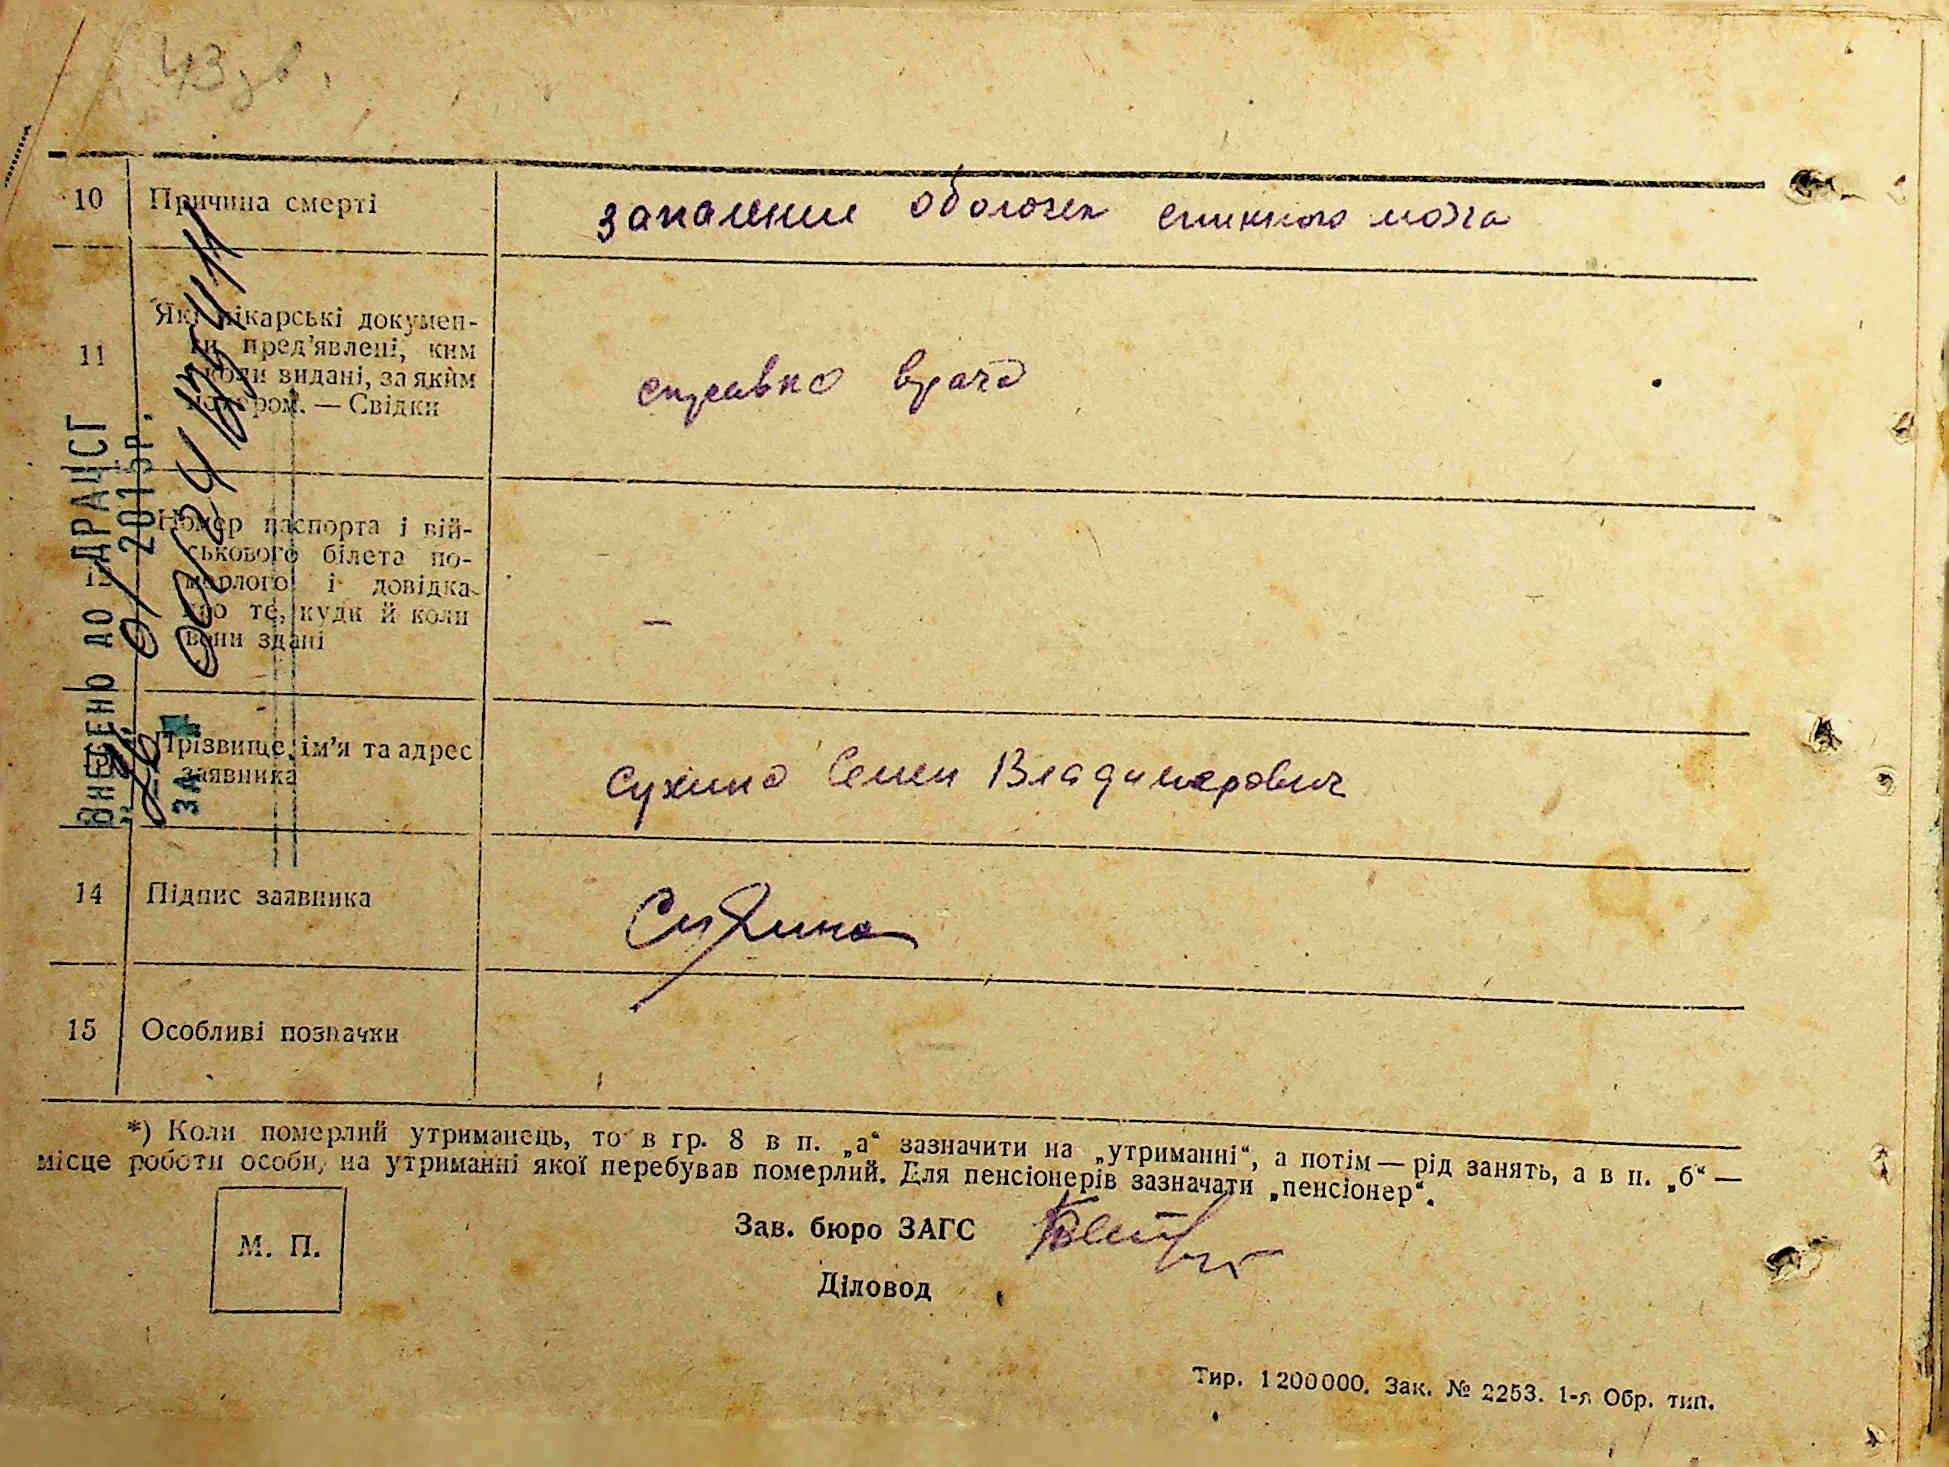 43 зв.
10 Причина смерті запаление оболочек спинного мозга
11 Які лікарські докумен-
ти пред'явлені, ким
і коли видані, за яким
номером. — Свідки
справка врача
12 Номер паспорта і вій-
ськового білета по-
мерлого і довідка
про те, куди й коли
вони здані
—
13 Прізвище, ім'я та адрес
заявника
Сухина Семен Владимирович
14 Підпис заявника Сухина
15 Особливі позначки
Внесено до ДРАЦСГ
2015р.
ЗА №
*) Коли померлий утриманець, то в гр. 8 в п. „а“ зазначити на „утриманні“, а потім — рід занять, а в п. „б“ —
місце роботи особи, на утриманні якої перебував померлий. Для пенсіонерів зазначати „пенсіонер“.
М. П.
Зав. бюро ЗАГС
Діловод
Тир. 1200000. Зак. № 2253. 1-я Обр. тип.